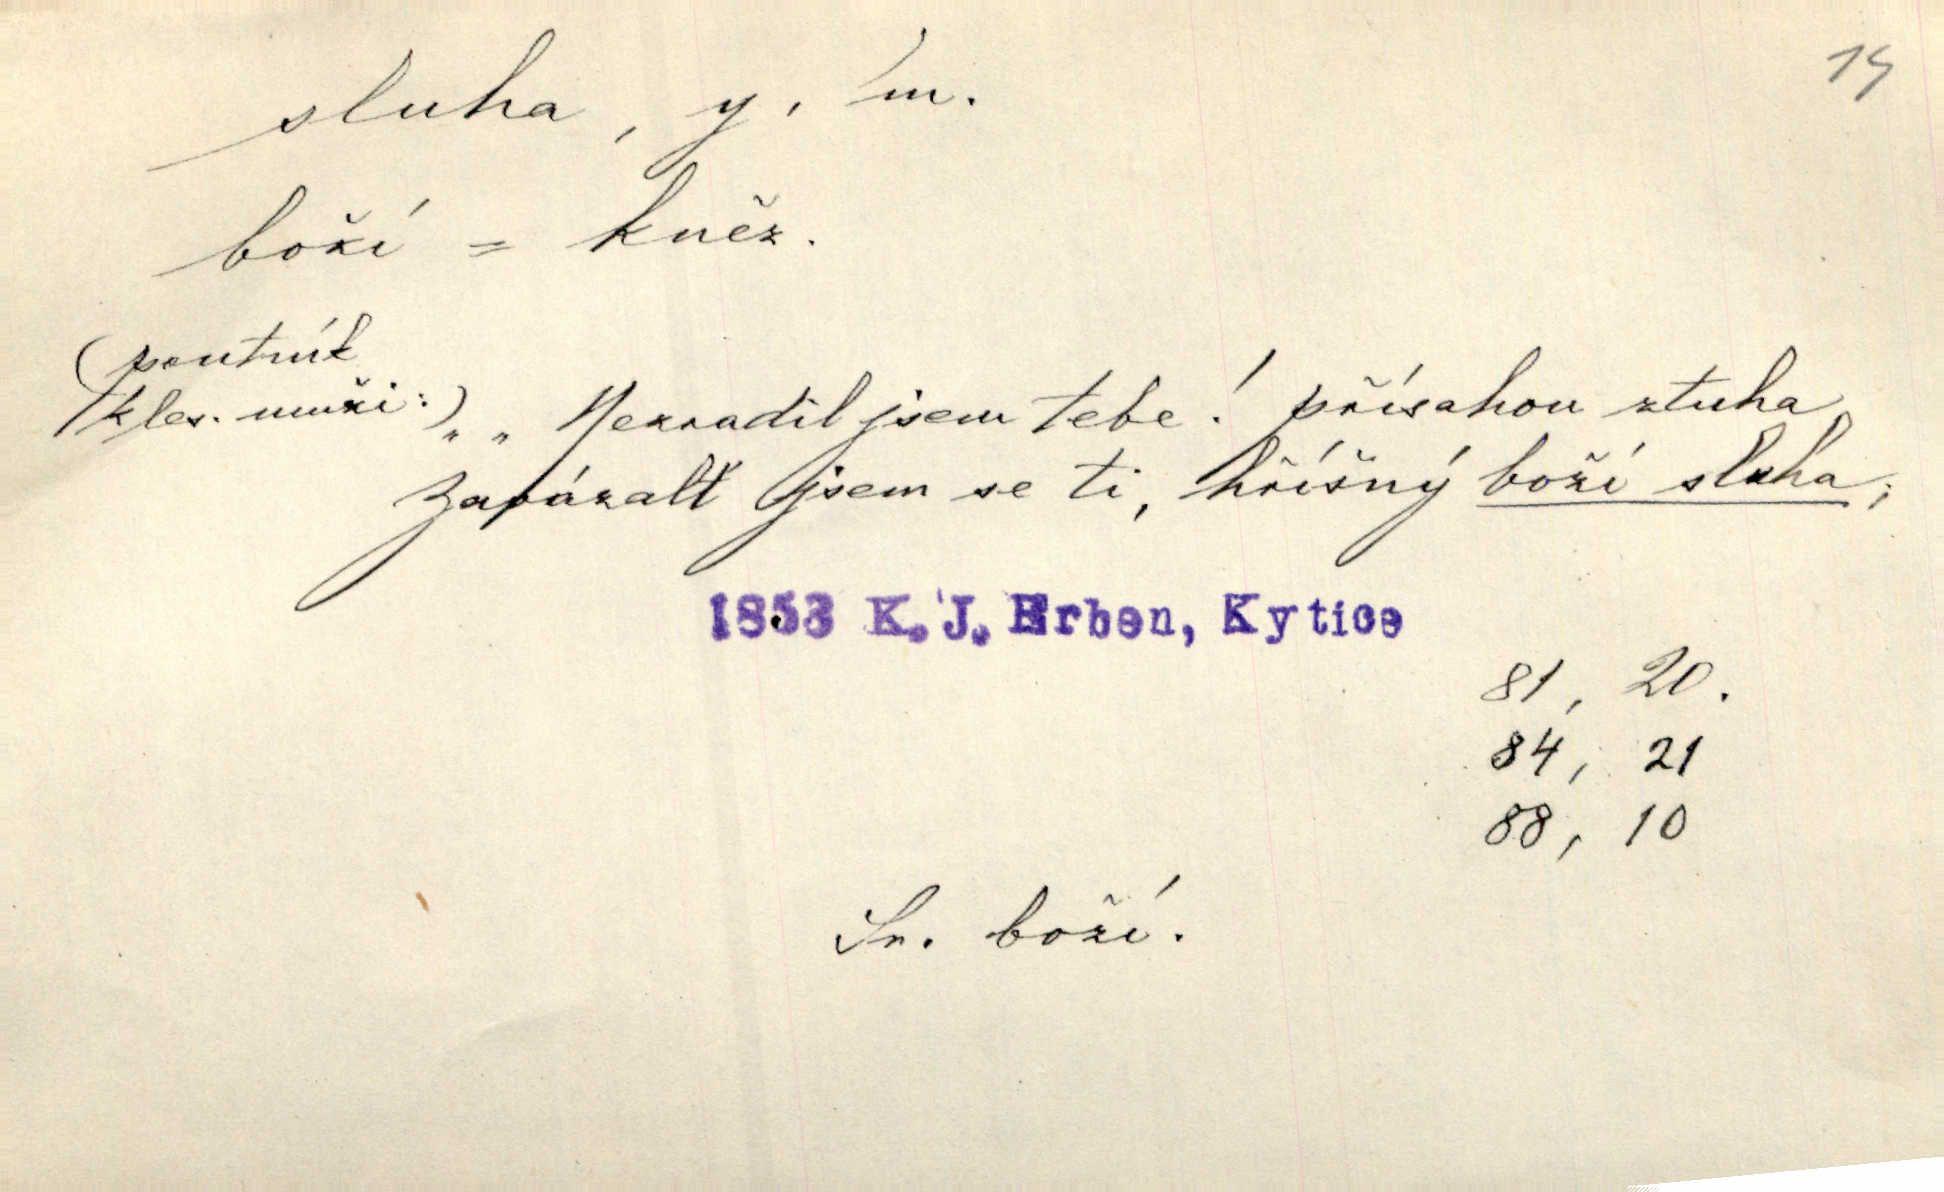 14
sluha, y, m.
boží = kněz.
(poutník
k les. muži:) „„Nezradil jsem tebe! přísahou ztuha
Zavázalť jsem se ti, hříšný boží sluha;
1853 K. J. Erben, Kytice
81, 20.
84, 21
88, 10
Sr. boží.